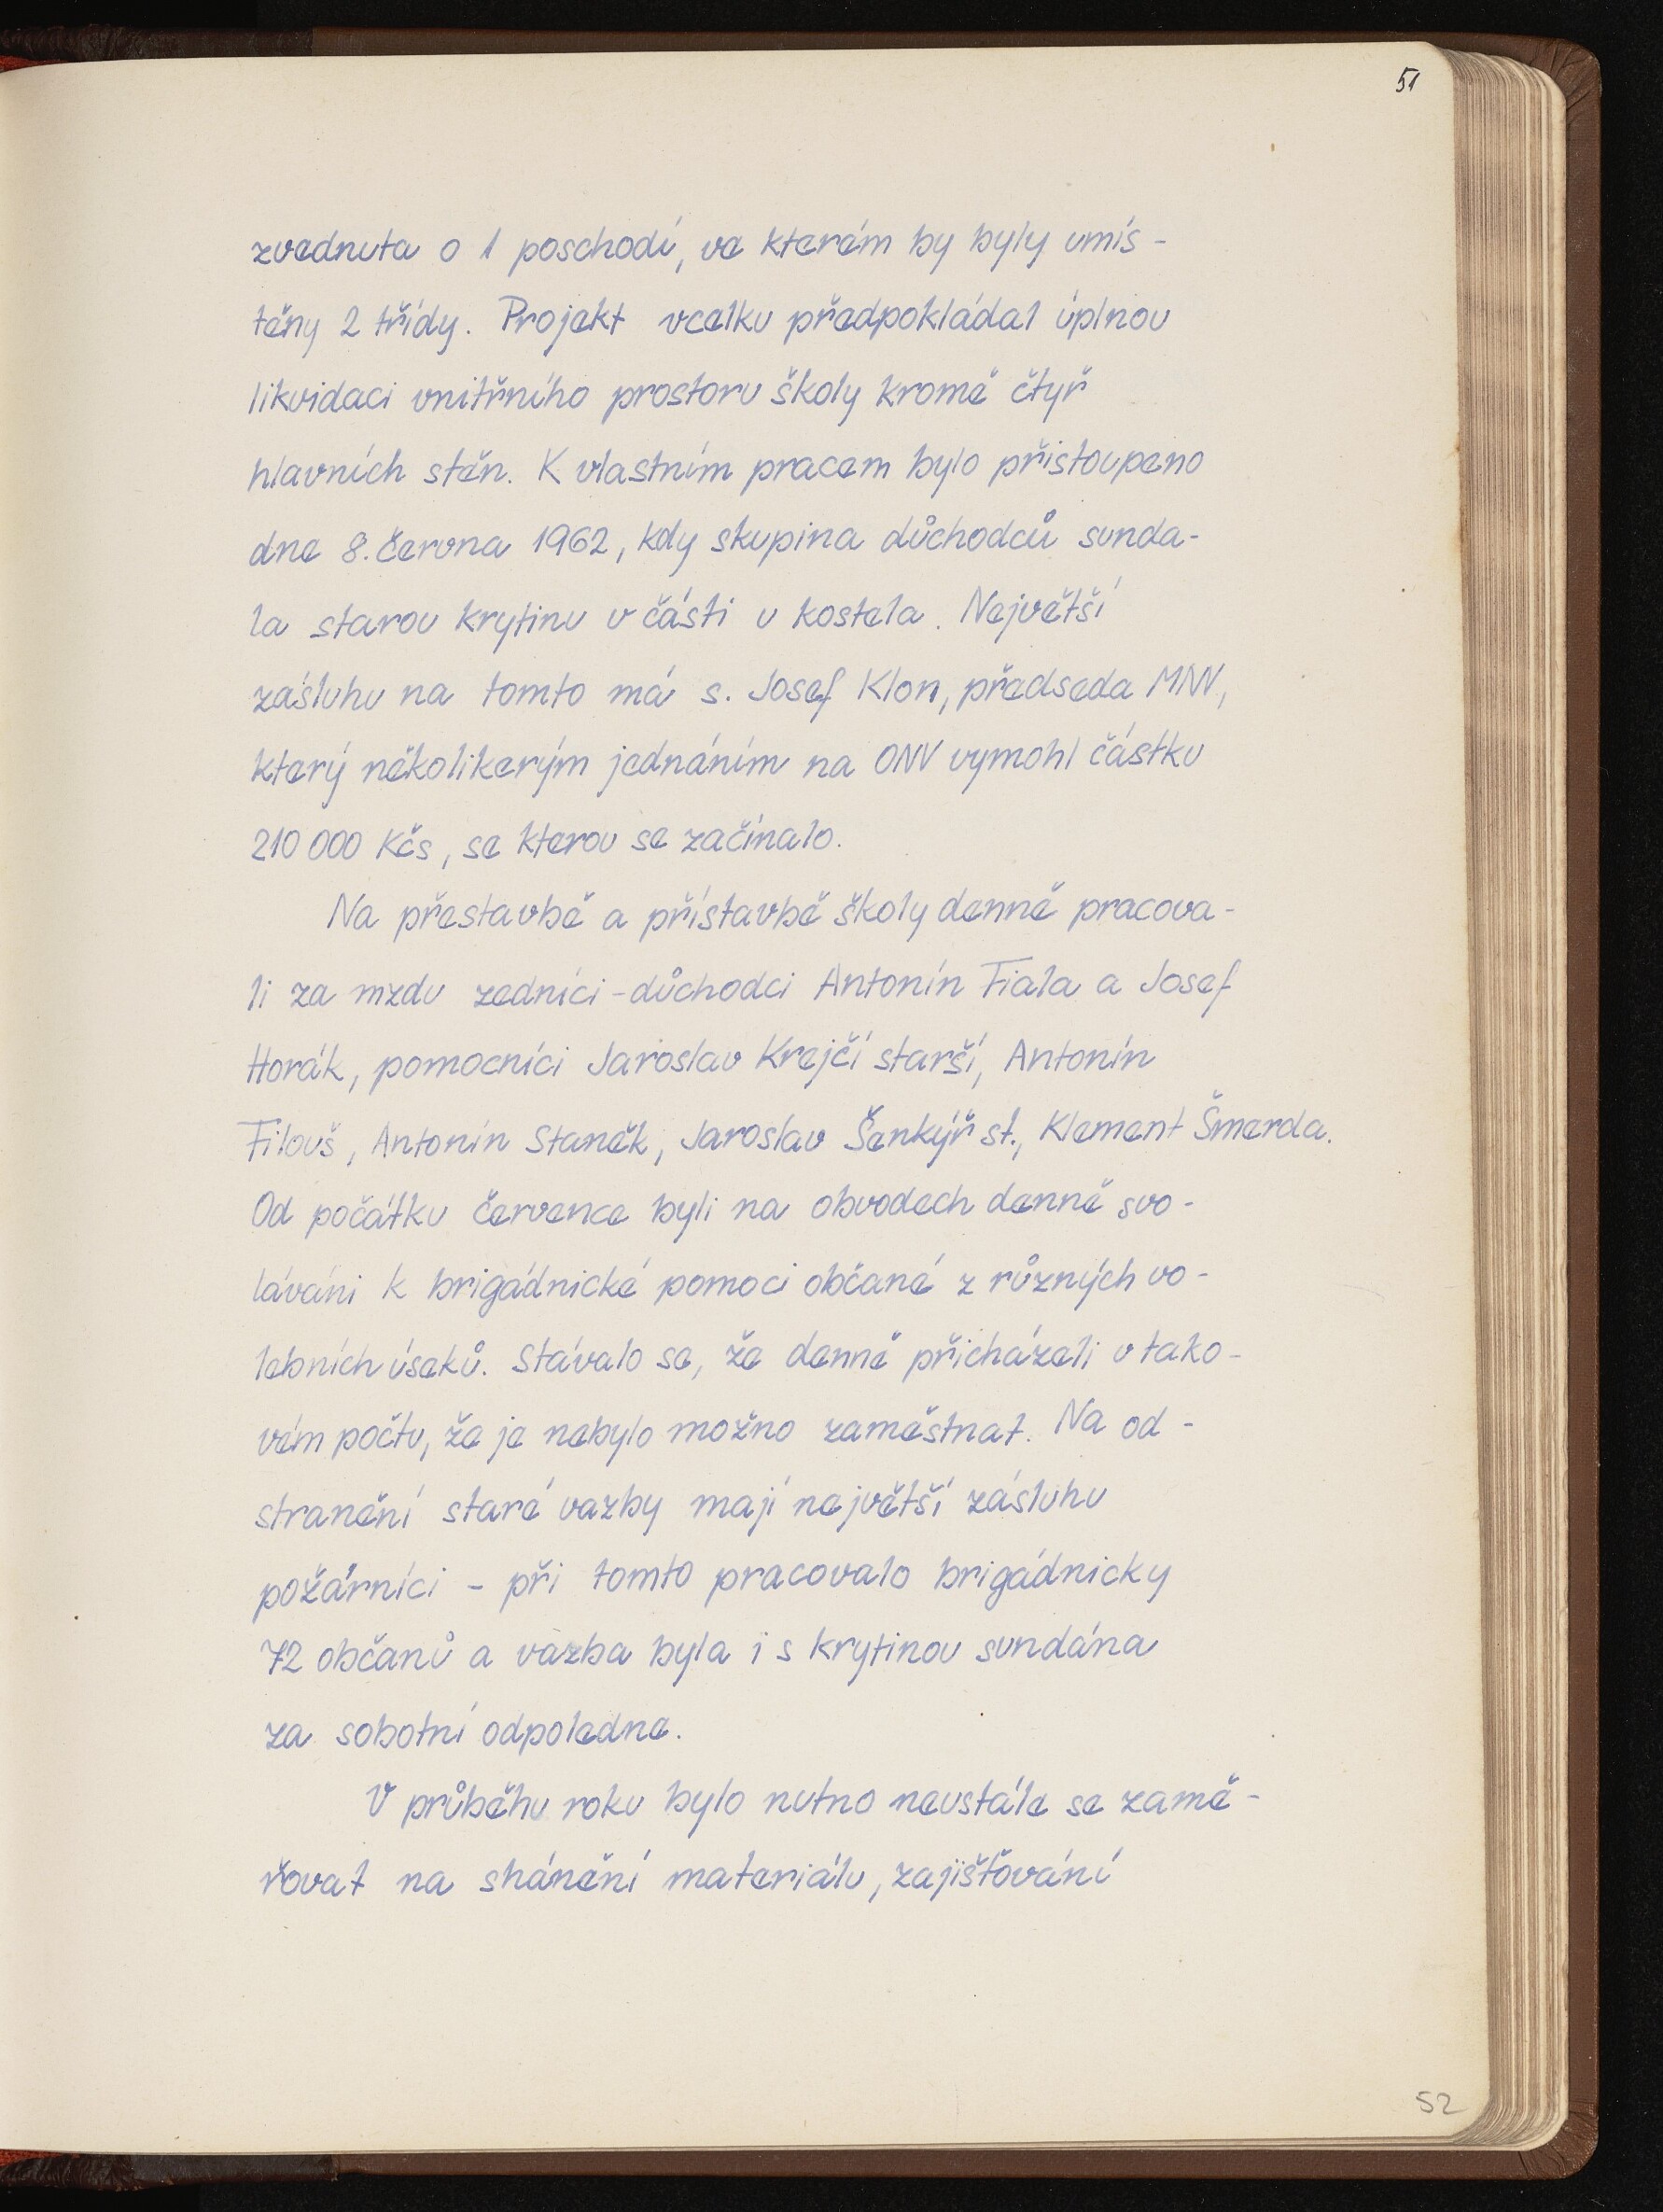 51
zvednuta o 1 poschodí, ve kterém by byly umís-
těny 2 třídy. Projekt vcelku předpokládal úplnou
likvidaci vnitřního prostoru školy kromě čtyř
hlavních stěn. K vlastním pracem bylo přistoupeno
dne 8. června 1962, kdy skupina důchodců sunda-
la starou krytinu v části u kostela. Největší
zásluhu na tomto má s. Josef Klon, předseda MNV,
který několikerým jednáním na ONV vymohl částku
210 000 Kčs, se kterou se začínalo.
Na přestavbě a přístavbě školy denně pracova-
li za mzdu zedníci-důchodci Antonín Fiala a Josef
Horák, pomocníci Jaroslav Krejčí starší, Antonín
Filouš, Antonín Staněk, Jaroslav Šenkýř st., Klement Šmerda.
Od počátku července byli na obvodech denně svo-
láváni k brigádnické pomoci občané z různých vo-
lebních úseků. Stávalo se, že denně přicházeli v tako-
vém počtu, že je nebylo možno zaměstnat. Na od-
stranění staré vazby mají největší zásluhu
požárníci - při tomto pracovalo brigádnicky
72 občanů a vazba byla i s krytinou sundána
za sobotní odpoledne.
V průběhu roku bylo nutno neustále se zamě-
řovat na shánění materiálu, zajišťování
52